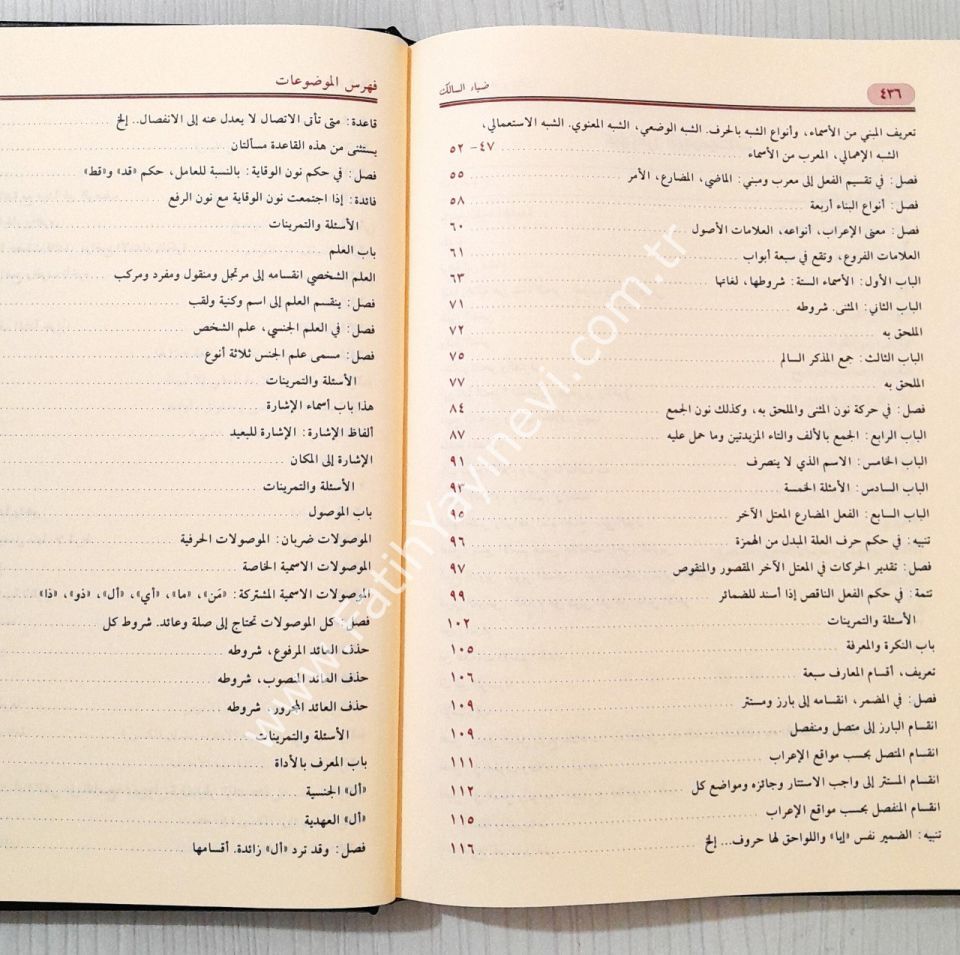 ٤٣٦
ضياء السالك
تعريف المبني من الأسماء، وأنواع الشبه بالحرف. الشبه الوضعي، الشبه المعنوي. الشبه الاستعمالي،
الشبه الإهمالي، المعرب من الأسماء ٤٧- ٥٢
فصل: في تقسيم الفعل إلى معرب ومبني: الماضي، المضارع، الأمر ٥٥
فصل: أنواع البناء أربعة ٥٨
فصل: معنى الإعراب، أنواعه، العلامات الأصول ٦٠
العلامات الفروع، وتقع في سبعة أبواب ٦١
الباب الأول: الأسماء الستة: شروطها، لغاتها ٦٣
الباب الثاني: المثنى. شروطه ٧١
الملحق به ٧٢
الباب الثالث: جمع المذكر السالم ٧٥
الملحق به ٧٧
فصل: في حركة نون المثنى والملحق به، وكذلك نون الجمع ٨٤
الباب الرابع: الجمع بالألف والتاء المزيدتين وما حمل عليه ٨٧
الباب الخامس: الاسم الذي لا ينصرف ٩١
الباب السادس: الأمثلة الخمسة
الباب السابع: الفعل المضارع المعتل الآخر
تنبيه: في حكم حرف العلة المبدل من الهمزة ٩٦
فصل: تقدير الحركات في المعتل الآخر المقصور والمنقوص ٩٧
تتمة: في حكم الفعل الناقص إذا أسند للضمائر ٩٩
الأسئلة والتمرينات ١٠٢
باب النكرة والمعرفة ١٠٥
تعريف، أقسام المعارف سبعة ١٠٦
فصل: في المضمر، انقسامه إلى بارز ومستتر ١٠٩
انقسام البارز إلى متصل ومنفصل ١٠٩
انقسام المتصل بحسب مواقع الإعراب ١١١
انقسام المستتر إلى واجب الاستتار وجائزه ومواضع كل ١١٢
انقسام المنفصل بحسب مواقع الإعراب ١١٥
تنبيه: الضمير نفس «إيا» واللواحق لها حروف... إلخ ١١٦
فهرس الموضوعات
قاعدة: متى تأتى الاتصال لا يعدل عنه إلى الانفصال.. إلخ
يستثنى من هذه القاعدة مسألتان
فصل: في حكم نون الوقاية: بالنسبة للعامل، حكم «قد» و«قط»
فائدة: إذا اجتمعت نون الوقاية مع نون الرفع
الأسئلة والتمرينات
باب العلم
العلم الشخصي انقسامه إلى مرتجل ومنقول ومفرد ومركب
فصل: ينقسم العلم إلى اسم وكنية ولقب
فصل: في العلم الجنسي، علم الشخص
فصل: مسمى علم الجنس ثلاثة أنوع
الأسئلة والتمرينات
هذا باب أسماء الإشارة
ألفاظ الإشارة: الإشارة للبعيد
الإشارة إلى المكان
الأسئلة والتمرينات
باب الموصول
الموصولات ضربان: الموصولات الحرفية
الموصولات الاسمية الخاصة
الموصولات الاسمية المشتركة: «مَن»، «ما»، «أي»، «أل»، «ذو»، «ذا»
فصل: كل الموصولات تحتاج إلى صلة وعائد. شروط كل
حذف العائد المرفوع، شروطه
حذف العائد المنصوب، شروطه
حذف العائد المجرور، شروطه
الأسئلة والتمرينات
باب المعرف بالأداة
«أل» الجنسية
«أل» العهدية
فصل: وقد ترد «أل» زائدة. أقسامها
www.FatihYayinevi.com.tr